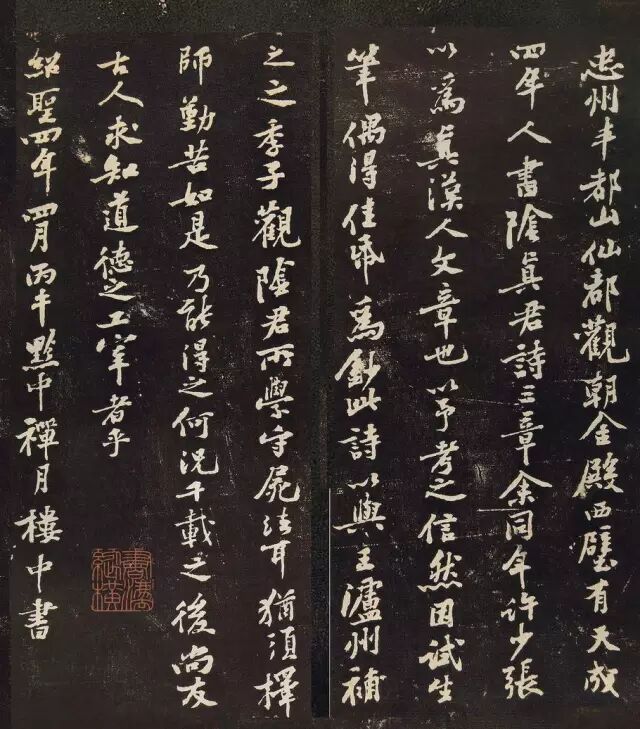 忠州丰都山仙都觀朝金殿西壁有天成
四年人書陰真君詩三章余同年許少張
以為真漢人文章也以予考之信然因試生
筆偶得佳紙為鈔此詩以與王瀘州補
之之季子觀陰君所學守屍法耳猶須擇
師勤苦如是乃能得之何況千載之後尚友
古人求知道德之工宰者乎
紹聖四年四月丙午黔中禪月樓中書